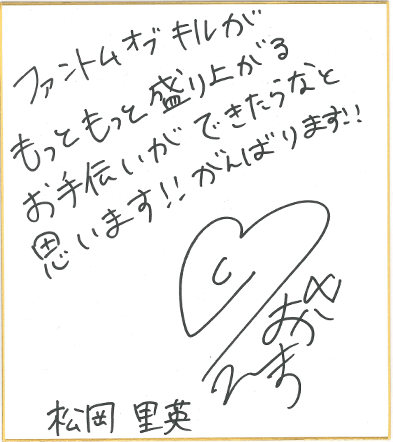 ファントムオブキルが
もっともっと盛り上がる
お手伝いができたらなと
思います!!がんばります!!
松岡 里英